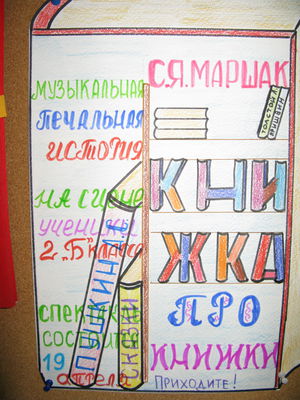 МУЗЫКАЛЬНАЯ
ПЕЧАЛЬНАЯ
ИСТОРИЯ
НА СЦЕНЕ
УЧЕНИКИ
2 „Б" КЛАССА
СПЕКТАКЛЬ
СОСТОИТСЯ
19
апреля
ПУШКИН А.С.
СКАЗКИ
С.Я. МАРШАК
ТОЛСТОЙ Л.
КНИ
ЖКА
ПРО
КНИЖКИ
ПРИХОДИТЕ!